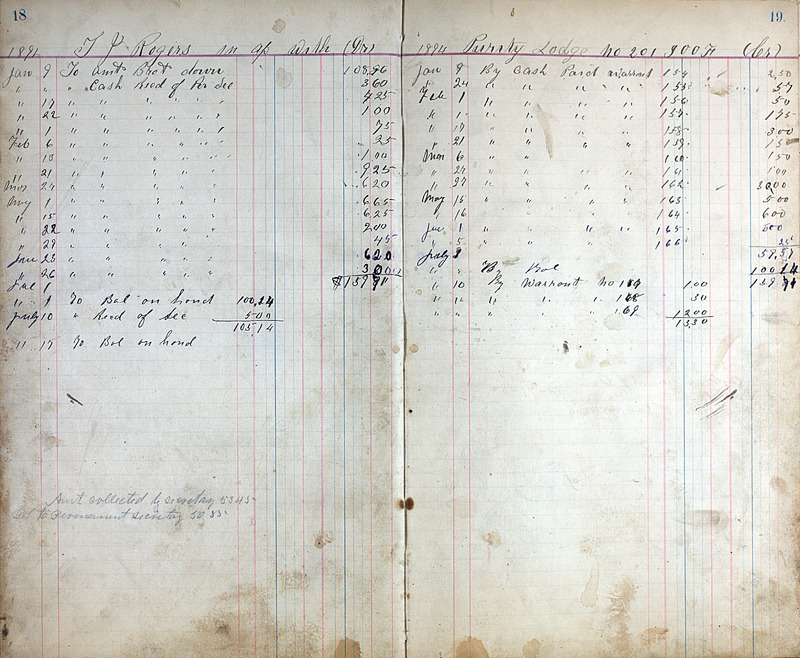 18
1894 T J Rogers in ap with (Dr)
Jan 9 To amt Brot down 108,56
" " " Cash Recd of Per Sec 3 60
" 17 " " " " " 4 25
" 22 " " " " " 1 00
" 1 " " " " " 75
Feb 6 " " " " " 25
" 13 " " " " " 1 00
" 21 " " " " 9 25
Mar 24 " " " " 6 20
May 1 " " " " 6 65
" 15 " " " " 6 25
" 22 " " " " 2 00
" 29 " " " " 45
June 23 " " " " 6 20
" 26 " " " " 3 00
Jul 1 $159 71
" 9 To Bal on hand 100,14
July 10 " Recd of Sec 5 00
105,14
" 17 To Bal on hand
Amt collected by secretary 53.45
permanent secretary
19.
1894 Purity Lodge no 201 (Cr)
Jan 9 By Cash Paid warrant 154 2,50
" 24 " " " " 155 57
Feb 1 " " " " 156 50
" 1 " " " " 157 1 75
" 17 " " " " 158 3 00
" 21 " " " " 159 1 50
Mar 6 " " " " 160 1 50
" 24 " " " " 161 1 00
" 27 " " " " 162 30 00
May 15 " " " " 163 5 00
" 16 " " " " 164 6 00
June 1 " " " " 165 6 00
" 5 " " " 166 25
July 9 59,57
" " By Bal 100 14
" 10 By Warrant no 1 00 159 71
" " " " " 168 30
" " " " " 169 12 00
13 30